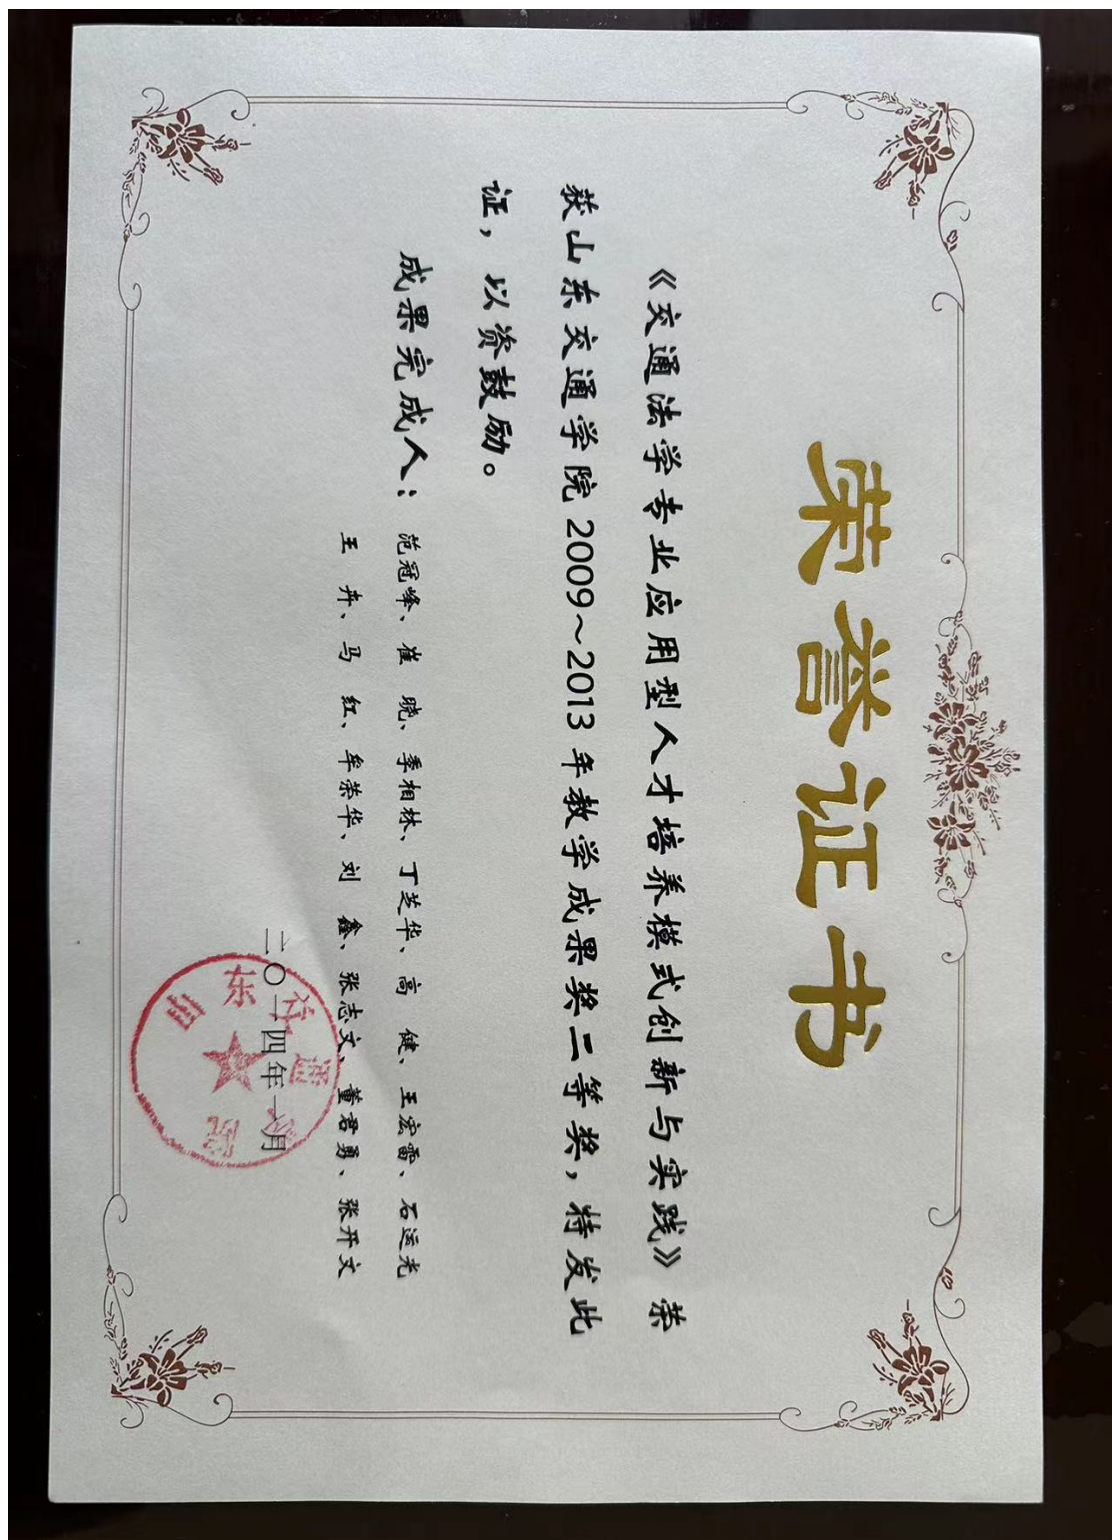 荣誉证书
《交通法学专业应用型人才培养模式创新与实践》荣
获山东交通学院2009~2013年教学成果奖二等奖,特发此
证,以资鼓励。
成果完成人:范冠峰、崔 晓、季相林、丁芝华、高 健、王宏雷、石运光
王 卉、马 红、牟荣华、刘 鑫、张志文、董君勇、张开文
山东交通学院
二〇一四年一月